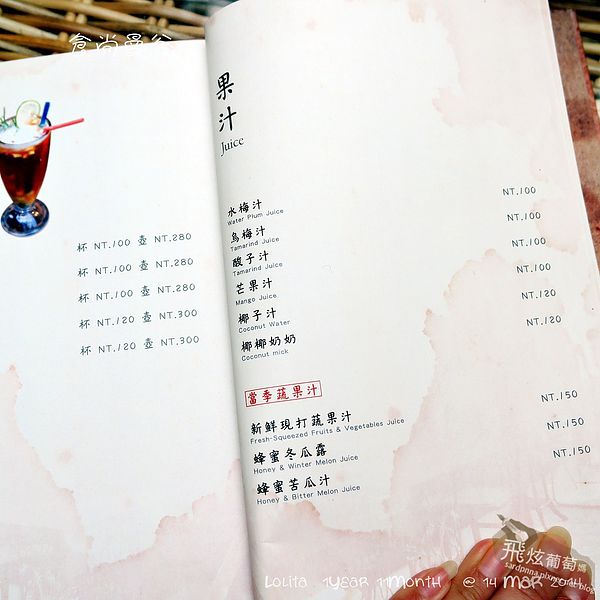 食尚曼谷
杯 NT.100 壺 NT.280
杯 NT.100 壺 NT.280
杯 NT.100 壺 NT.280
杯 NT.120 壺 NT.300
杯 NT.120 壺 NT.300
果汁
Juice
水梅汁 NT.100
Water Plum Juice
烏梅汁 NT.100
Tamarind Juice
酸子汁 NT.100
Tamarind Juice
芒果汁 NT.100
Mango Juice
椰子汁 NT.120
Coconut Water
椰椰奶奶 NT.120
Coconut mick
當季蔬果汁
新鮮現打蔬果汁 NT.150
Fresh-Squeezed Fruits & Vegetables Juice
蜂蜜冬瓜露 NT.150
Honey & Winter Melon Juice
蜂蜜苦瓜汁 NT.150
Honey & Bitter Melon Juice
飛炫葡萄媽
sardpnna.pixnet.net/blog
Lolita 1Year 11Month @ 14 Mar 2014